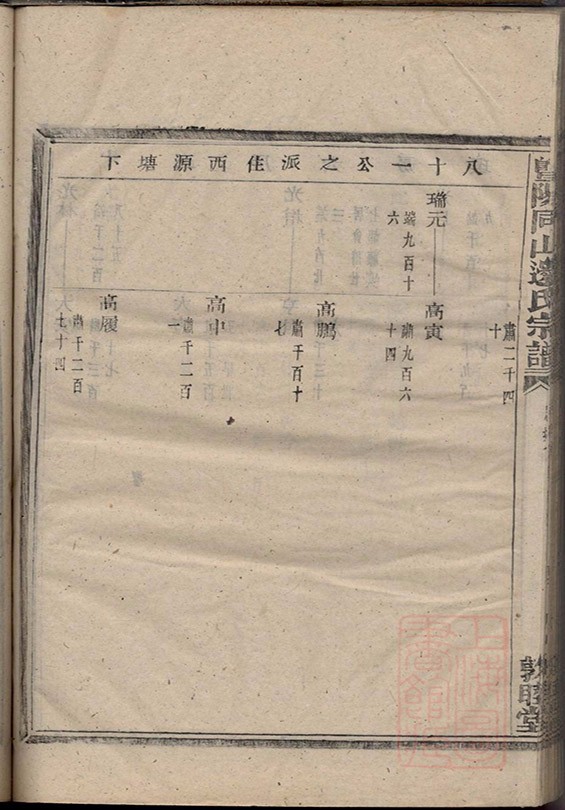 暨陽同山邊氏宗譜
敦睦堂
八十一公之派住西源塘下
肅二千四
十
瑞元
端九百十
六
高寅
肅九百六
十四
高鵬
肅千百十
七
高中
肅千二百
一
高履
肅千二百
七十四
上海圖書館藏